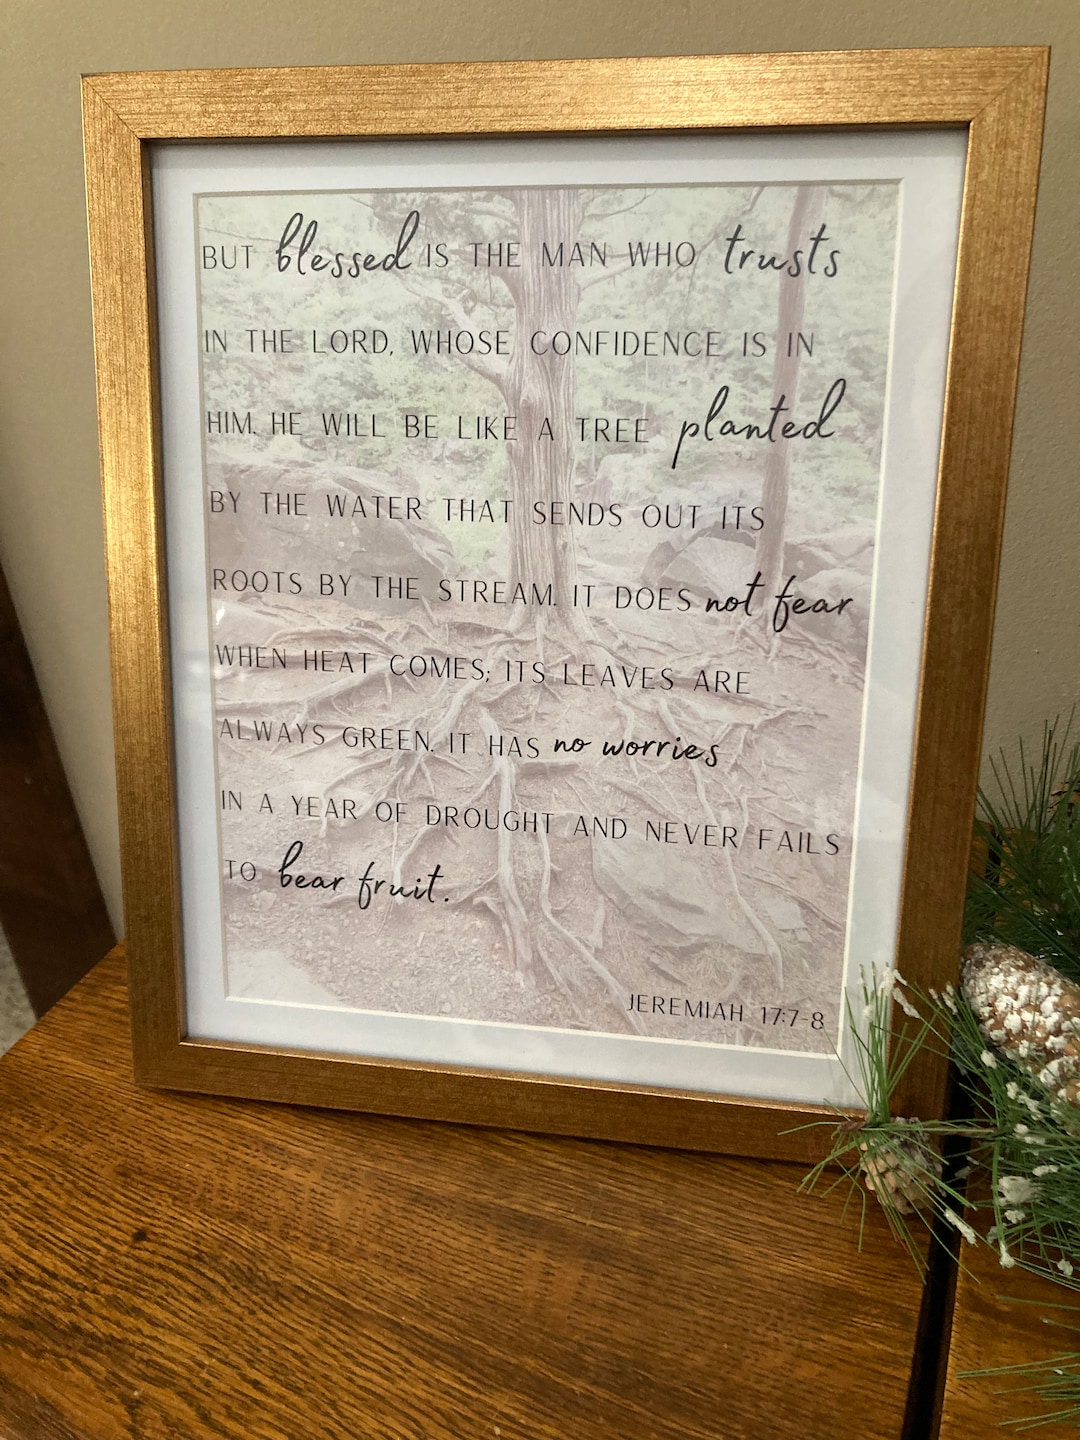 BUT blessed IS THE MAN WHO trusts
IN THE LORD, WHOSE CONFIDENCE IS IN
HIM. HE WILL BE LIKE A TREE planted
BY THE WATER THAT SENDS OUT ITS
ROOTS BY THE STREAM. IT DOES not fear
WHEN HEAT COMES; ITS LEAVES ARE
ALWAYS GREEN. IT HAS no worries
IN A YEAR OF DROUGHT AND NEVER FAILS
TO bear fruit.
JEREMIAH 17:7-8